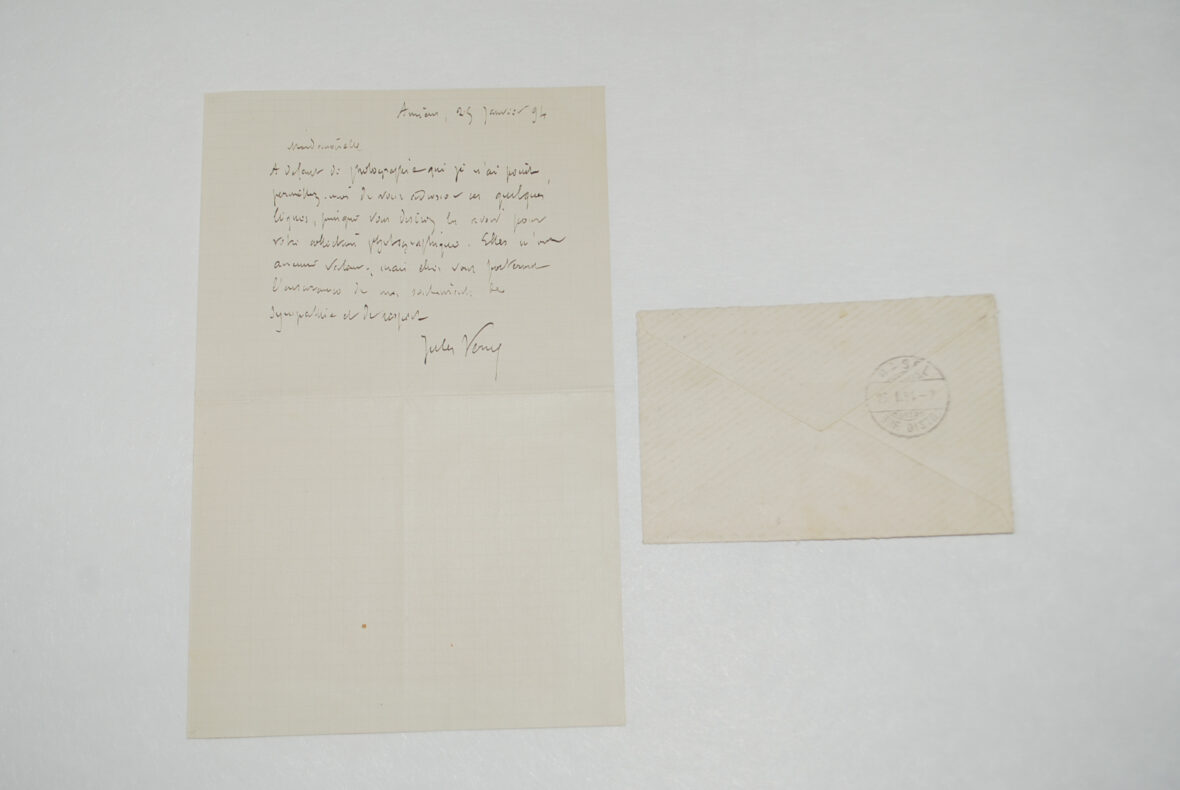 Amiens, 25 Janvier 94
Mademoiselle
A défaut de photographie que je n'ai point,
permettez-moi de vous adresser ces quelques
lignes, puisque vous désirez les avoir pour
votre collection
aucune valeur, mais elles vous porteront
l'assurance de mes sentiments de
sympathie et de respect
Jules Verne
BASEL